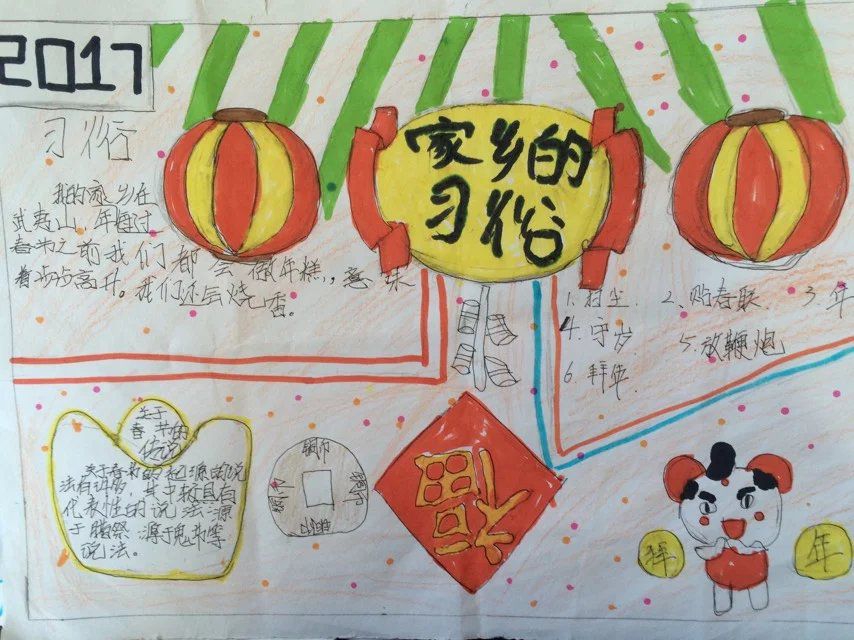 2017
家乡的
习俗
习俗
我的家乡在
武夷山，年每过
春节之前我们都会做年糕，意味
着步步高升。我们还会烧香。
1.扫尘. 2、贴春联. 3.年
4.守岁. 5.放鞭炮
6.拜年.
关于
春节的
传说
关于春节的起源的说
法有许多，其中较具有
代表性的说法源
于腊祭、源于鬼节等
说法。
铜币
福
拜
年